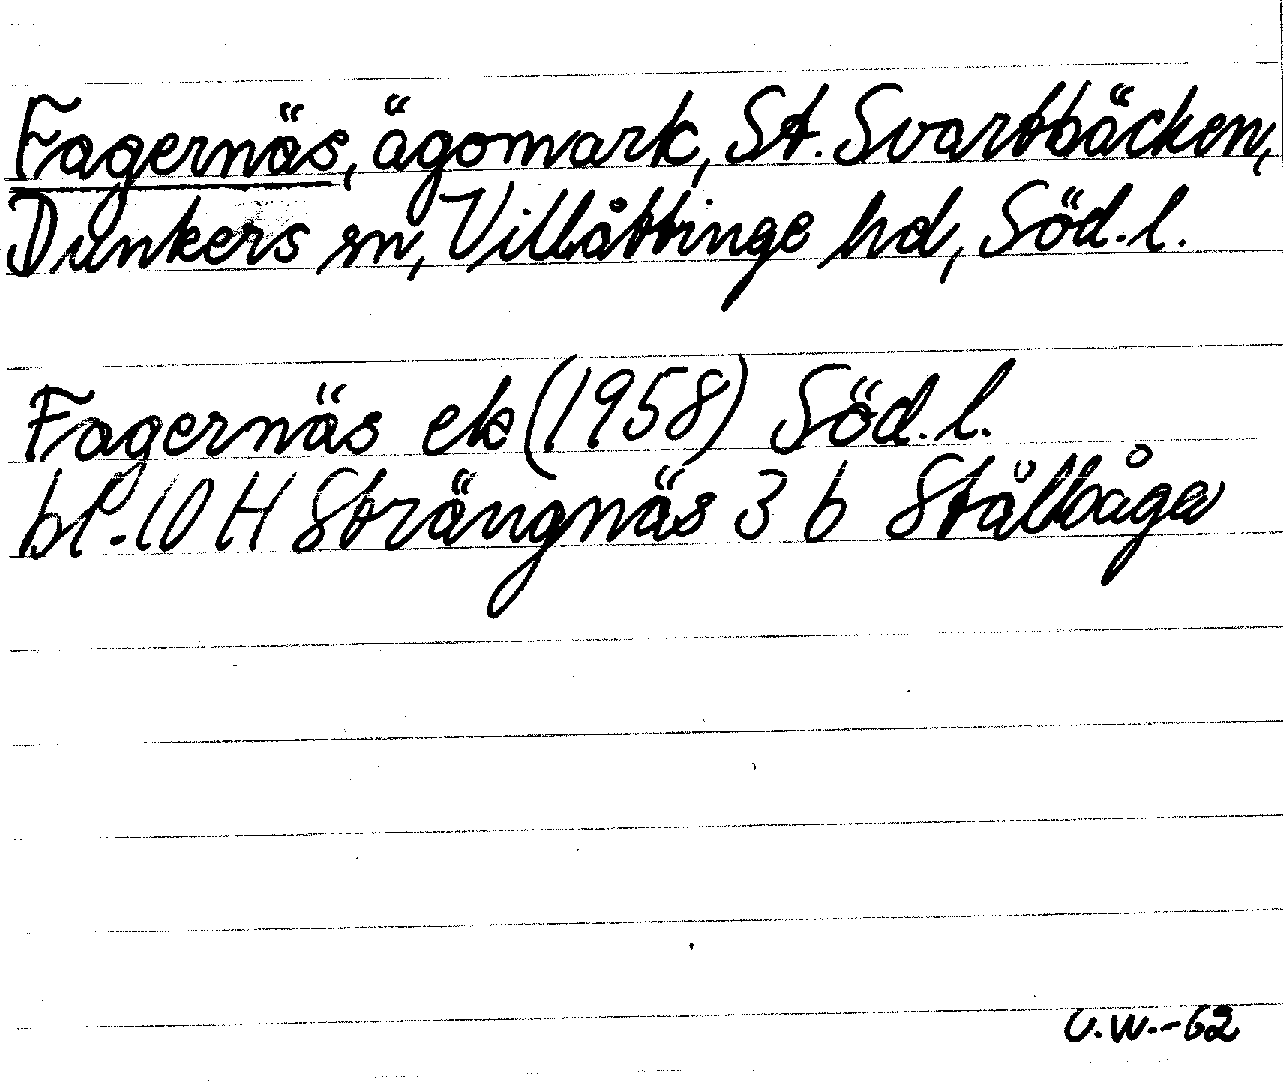 Fagernäs, ägomark, St. Svartbäcken,
Dunkers sn, Villåttinge hd, Söd.l.
Fagernäs ek (1958) Söd.l.
bl. 10 H Strängnäs 3 b Stålbåga
U.W.-62